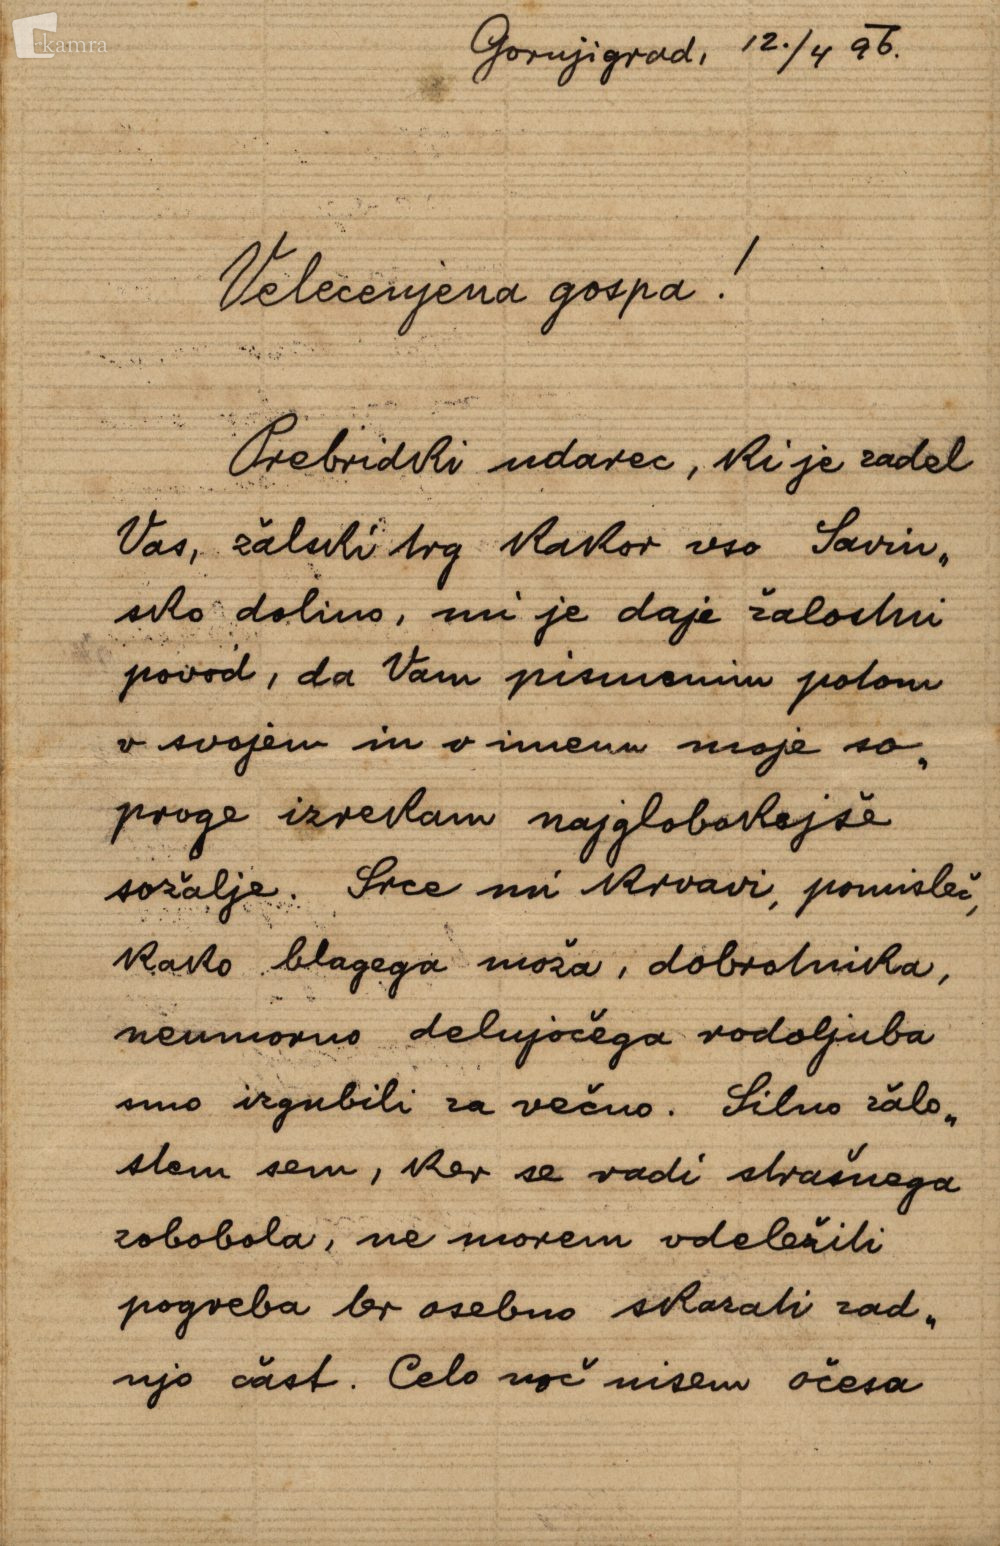 kamra
Gornjigrad, 12./4 96.
Velecenjena gospa!
Prebridki udarec, ki je zadel
Vas, žalski trg kakor vso Savin„
sko dolino, mi je daje žalostni
povod, da Vam pismenim potom
v svojem in v imenu moje so„
proge izrekam najglobokejše
sožalje. Srce mi krvavi, pomisleč,
kako blagega moža, dobrotnika,
neumorno delujočega rodoljuba
smo izgubili za večno. Silno žalo„
sten sem, ker se radi strašnega
zobobola, ne morem vdeležiti
pogreba ter osebno skazati zad„
njo čast. Celo noč nisem očesa